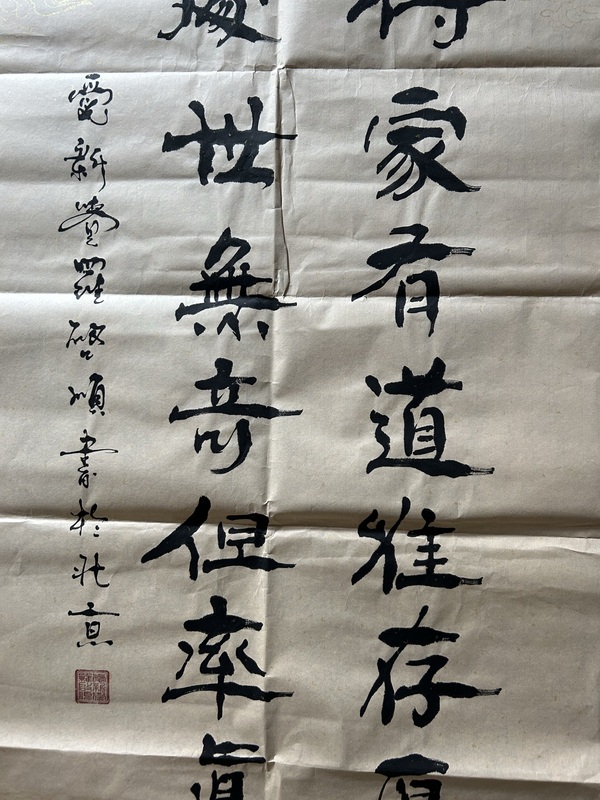 傳家有道惟存厚
處世無奇但率真
愛新覺羅啟順書於北京